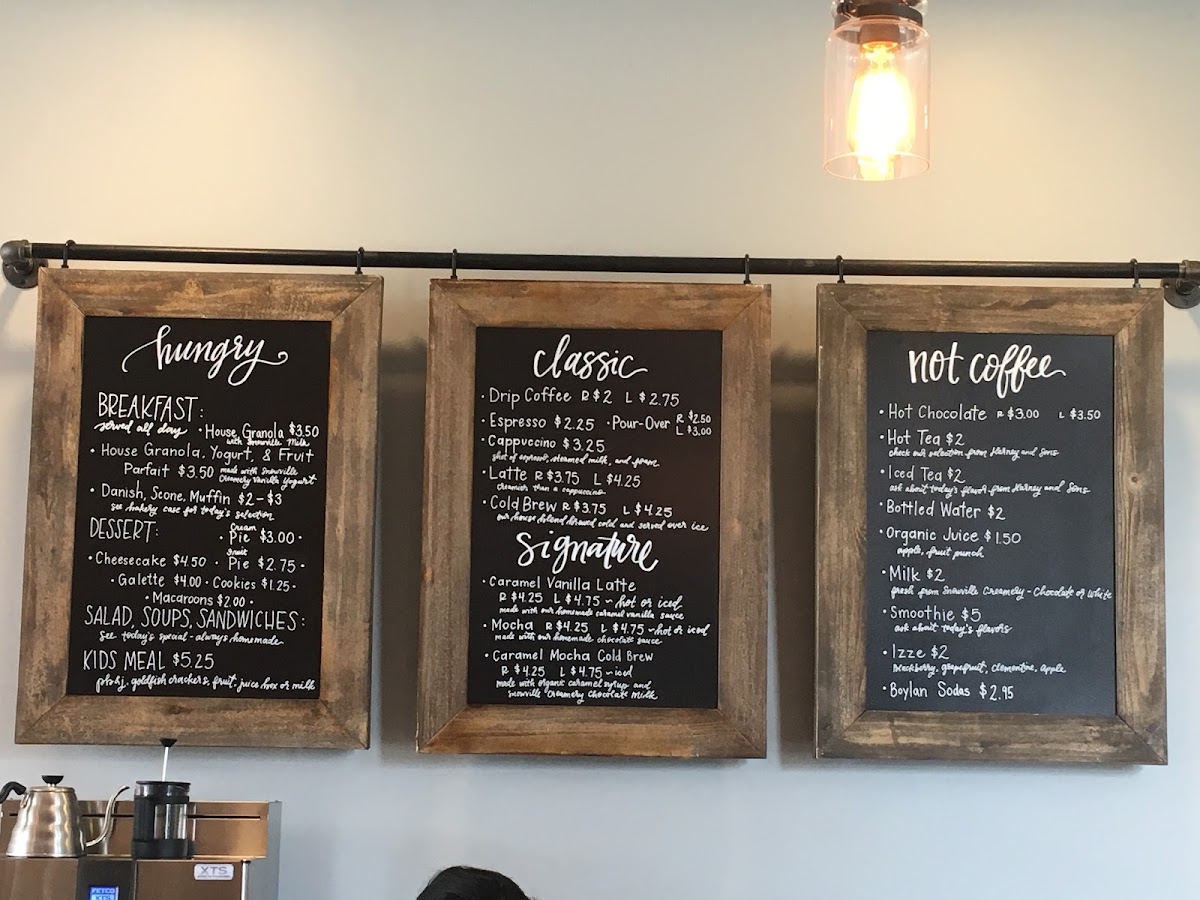 hungry
BREAKFAST:
served all day · House Granola $3.50
with Snowville Milk
· House Granola, Yogurt, & Fruit
Parfait $3.50 made with Snowville
Creamery Vanilla Yogurt
· Danish, Scone, Muffin $2-$3
see bakery case for today's selection
DESSERT:
· Cream Pie $3.00 ·
· Cheesecake $4.50 · Fruit Pie $2.75 ·
· Galette $4.00 · Cookies $1.25 ·
· Macaroons $2.00 ·
SALAD, SOUPS, SANDWICHES:
see today's special - always homemade
KIDS MEAL $5.25
pb&j, goldfish crackers, fruit, juice box or milk
classic
· Drip Coffee R $2 L $2.75
· Espresso $2.25 · Pour-Over R $2.50
L $3.00
· Cappuccino $3.25
shot of espresso, steamed milk, and foam
· Latte R $3.75 L $4.25
creamier than a cappuccino
· Cold Brew R $3.75 L $4.25
our house blend brewed cold and served over ice
signature
· Caramel Vanilla Latte
R $4.25 L $4.75 ~ hot or iced
made with our homemade caramel vanilla sauce
· Mocha R $4.25 L $4.75 ~ hot or iced
made with our homemade chocolate sauce
· Caramel Mocha Cold Brew
R $4.25 L $4.75 ~ iced
made with organic caramel syrup and
Snowville Creamery Chocolate Milk
not coffee
· Hot Chocolate R $3.00 L $3.50
· Hot Tea $2
check our selection from Harney and Sons
· Iced Tea $2
ask about today's flavor from Harney and Sons
· Bottled Water $2
· Organic Juice $1.50
apple, fruit punch
· Milk $2
fresh from Snowville Creamery - Chocolate or White
· Smoothie $5
ask about today's flavors
· Izze $2
blackberry, grapefruit, clementine, apple
· Boylan Sodas $2.95
XTS
FETCO
XTS